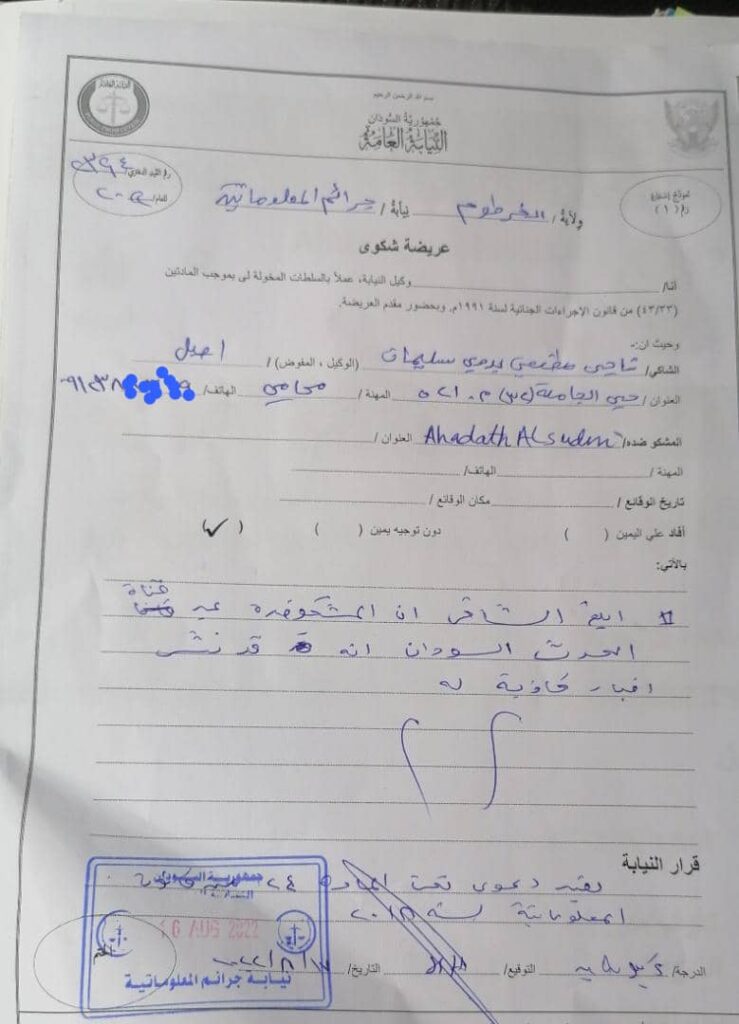 بسم الله الرحمن الرحيم
جمهورية السودان
النيابة العامة
النيابة العامة
رقم القيد الدفتري/ ٥٣٩٤
العام/
نموذج استمارة
رقم (١)
ولاية/ الخرطوم نيابة/ جرائم المعلوماتية
عريضة شكوى
أنا/ وكيل النيابة، عملاً بالسلطات المخولة لى بموجب المادتين
(٤٣/٣٣) من قانون الإجراءات الجنائية لسنة ١٩٩١م، وبحضور مقدم العريضة.
وحيث ان:-
الشاكي/ سليمان (الوكيل ، المفوض) / اصيل
العنوان / حي الجامعة المهنة / محامي الهاتف/
المشكو ضده/ Ahadath Alsudan العنوان /
المهنة / الهاتف/
تاريخ الوقائع / مكان الوقائع /
أفاد علي اليمين ( ) دون توجيه يمين ( ) (✓)
بالآتي:
ابلغ الشاكي ان المشكو ضده عبر قناة
الحدث السودان انه قد نشر
اخبار كاذبة له
قرار النيابة
يقيد دعوى تحت المادة ٢٤
المعلوماتية لسنة ٢٠١٨
الدرجة/ التوقيع/ التاريخ/
الختم
جمهورية السودان
16 AUG 2022
نيابة جرائم المعلوماتية